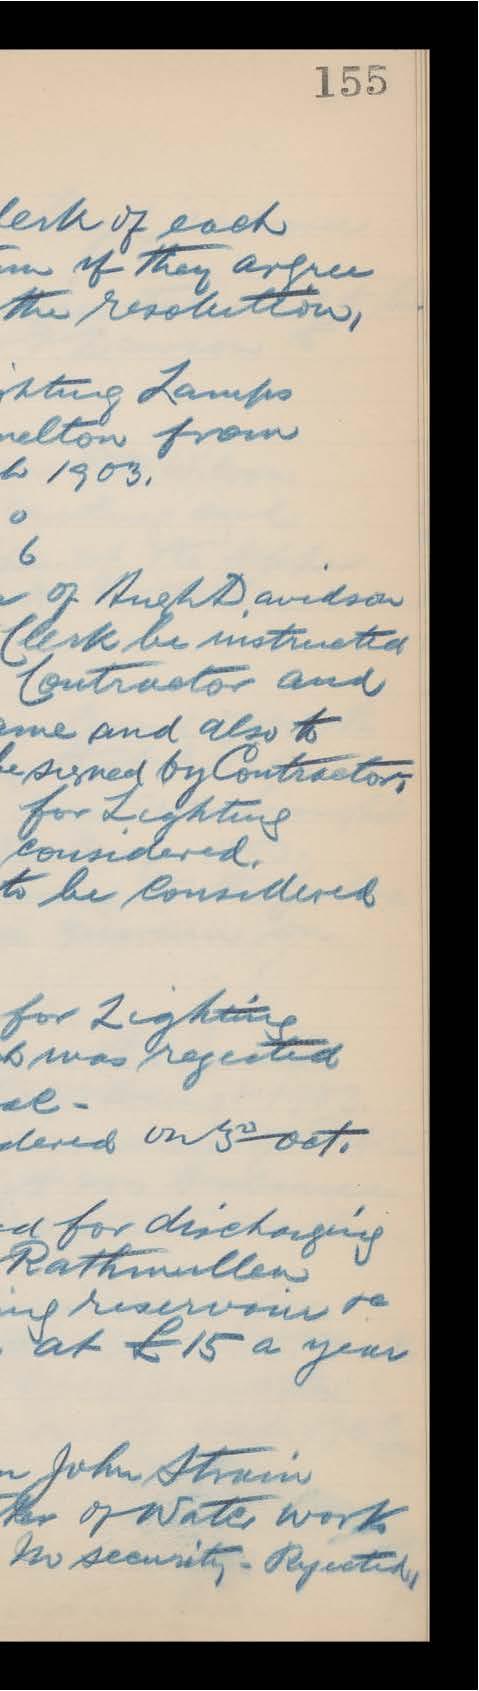 155
lerk of each
um if they argree
the resolution,
ighting Lamps
melton from
h 1903.
0
6
of Hugh Davidson
Clerk be instructed
Contractor and
ame and also to
be signed by Contractor,
for Lighting
considered.
to be considered
for Lighting
was rejected
al -
dered on 30 Oct.
ed for discharging
Rathmullen
ing reservoir &c
at £15 a year
John Strain
ker of Water Work
No security - Rejected,